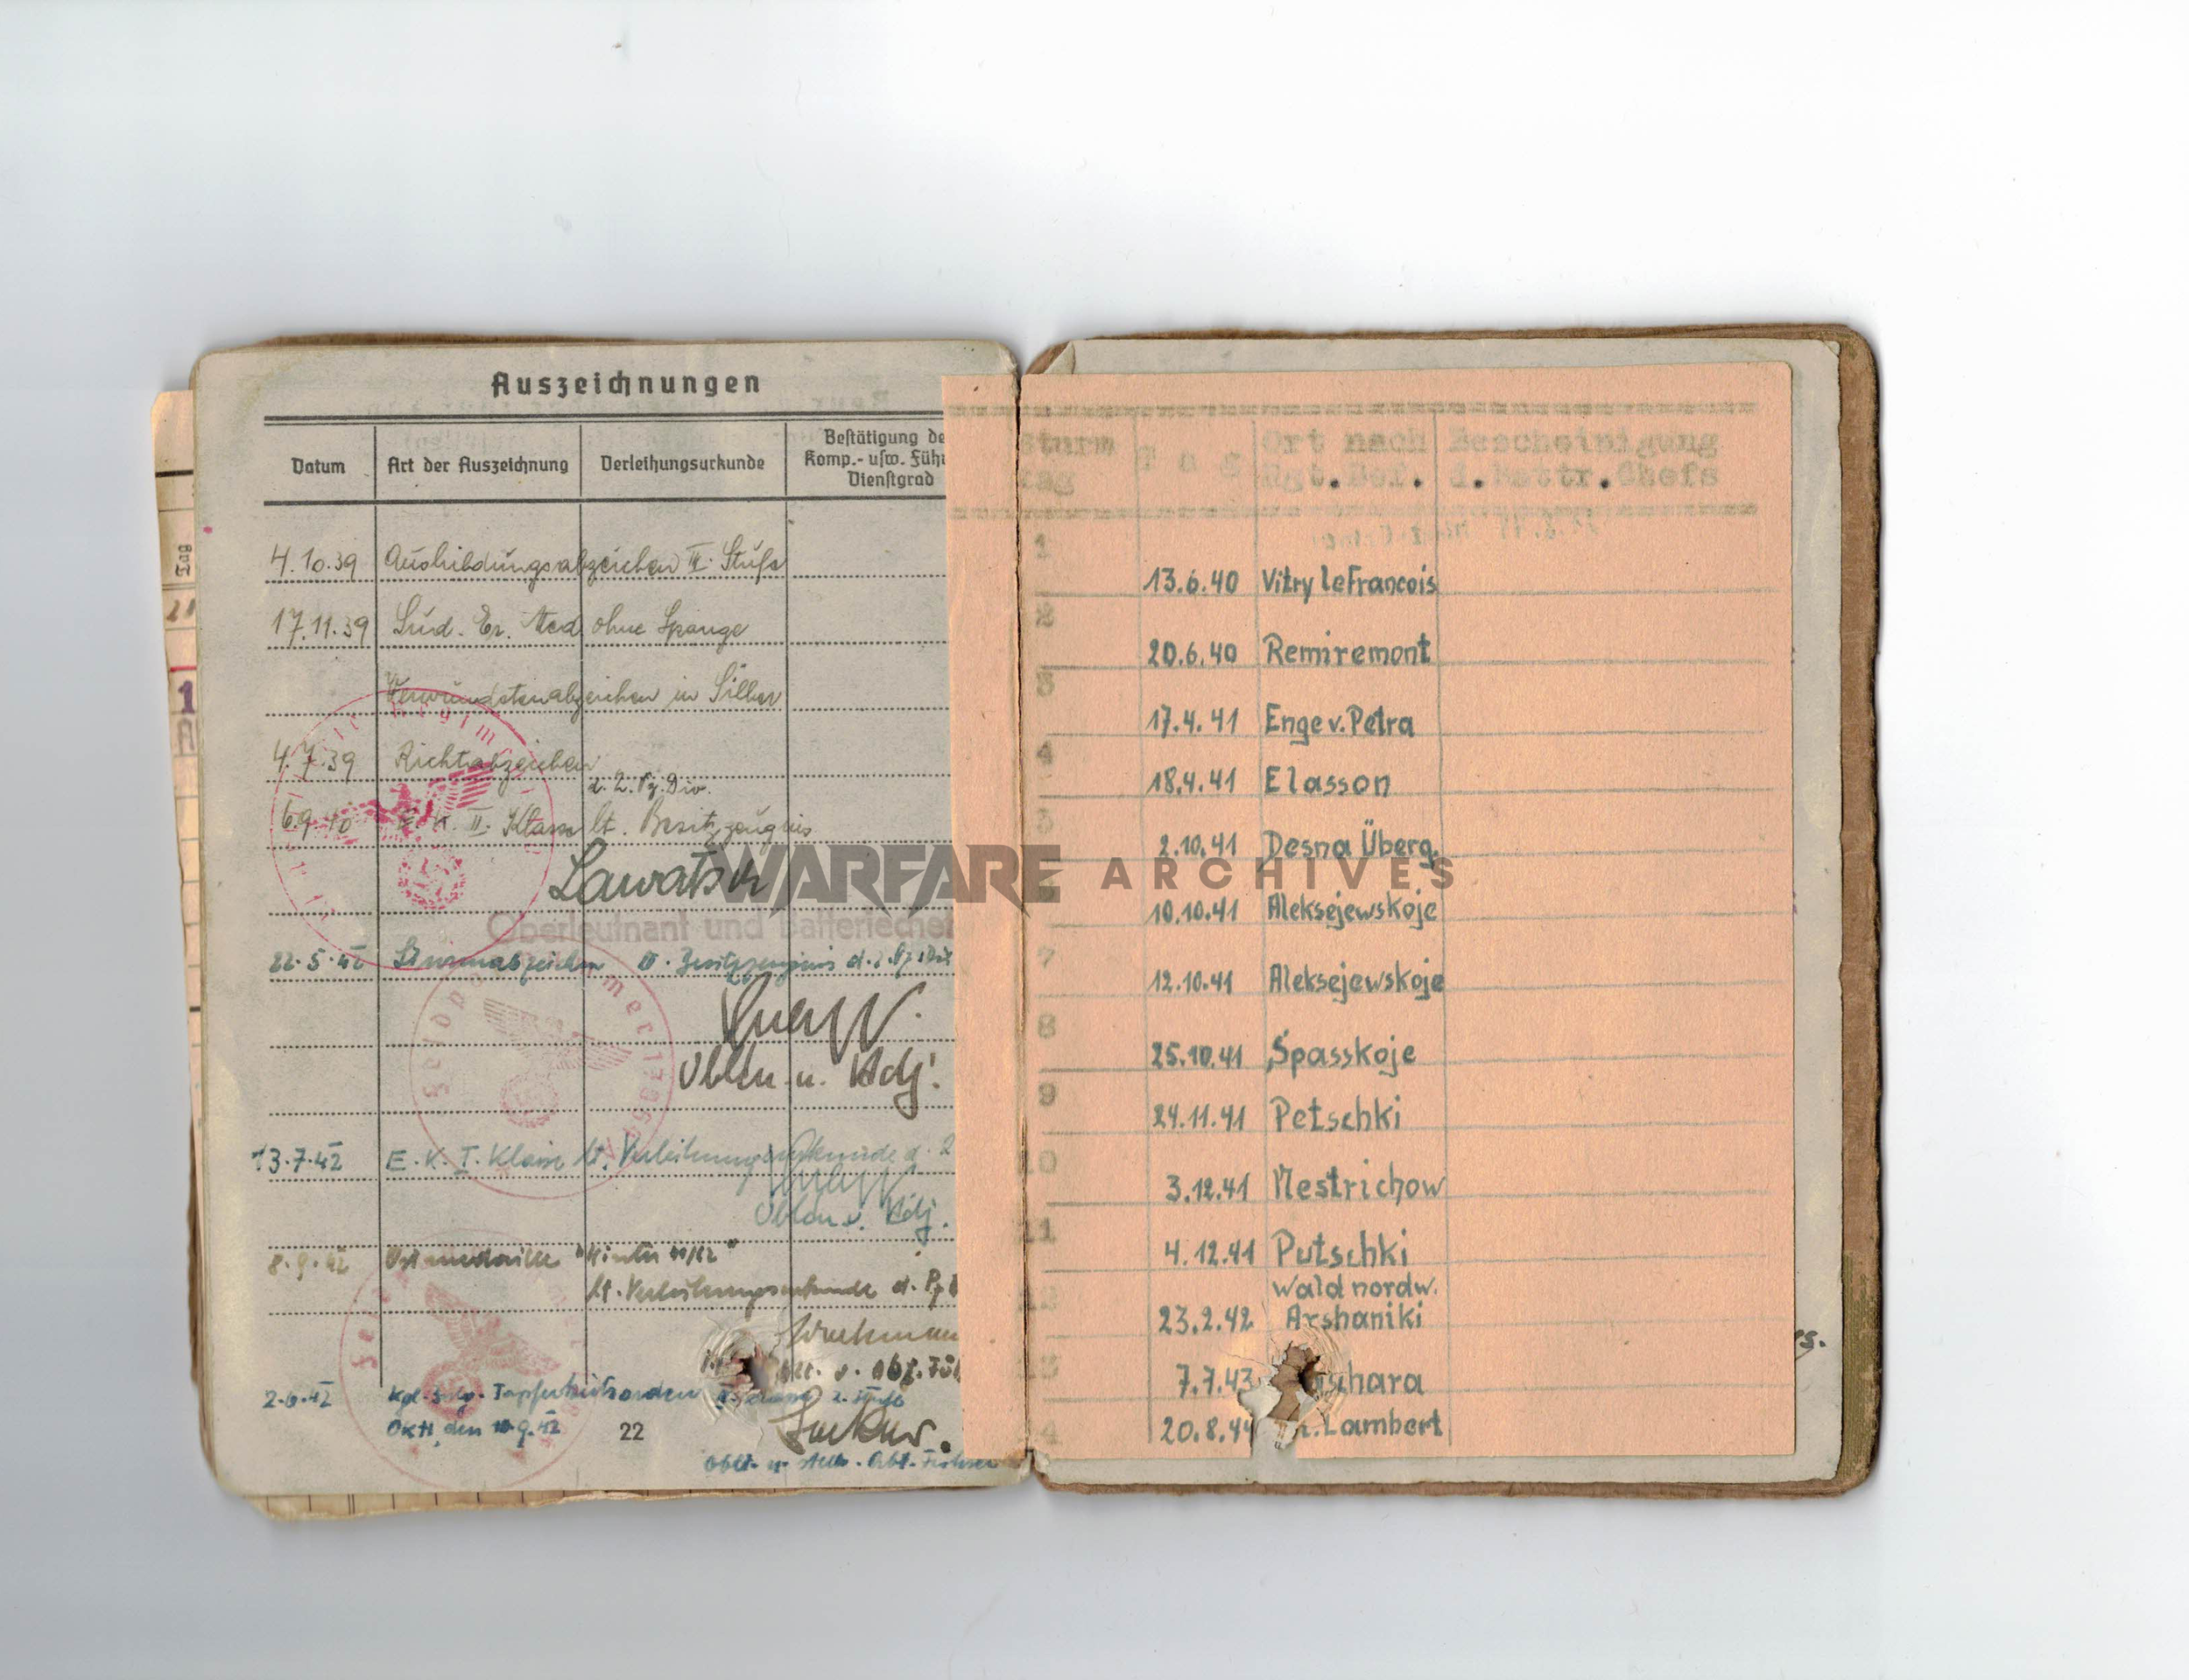 Auszeichnungen
Datum
Art der Auszeichnung
Verleihungsurkunde
Bestätigung de
Komp.- usw. Füh
Dienstgrad
4.10.39 Ausbildungsabzeichen III. Stufe
17.11.39 Sud. Er. Med ohne Spange
Verwundetenabzeichen in Silber
4.7.39 Richtabzeichen
d. 2. Pz. Div.
6.9.40 E.K. II. Klasse lt. Besitzzeugnis
Lawatsch
Oberleutnant und Batteriechef
22.5.42 Sturmabzeichen lt. Besitzzeugnis d. 2. Pz. Div
Obltn. u. Adj.
13.7.42 E.K. I. Klasse lt. Verleihungsurkunde d. 2
Obltn. u. Adj.
8.9.42 Ostmedaille "Winter 41/42"
lt. Verleihungsurkunde d. Pz
u. Abt. Füh
2.6.42 Kgl. Tapferkeitsorden 2. Stufe
OKH, den 9.42
22
Oblt. u. stellv. Abt. Führer
Tag
WARFARE ARCHIVES
Sturm
tag
Tag
Ort nach
Rgt.Bef.
Bescheinigung
d.Battr.Chefs
1 13.6.40 Vitry le Francois
2 20.6.40 Remiremont
3 17.4.41 Enge v. Petra
4 18.4.41 Elasson
5 2.10.41 Desna Überg.
10.10.41 Aleksejewskoje
7 12.10.41 Aleksejewskoje
8 25.10.41 Spasskoje
9 24.11.41 Petschki
10 3.12.41 Mestrichow
11 4.12.41 Putschki
Wald nordw.
12 23.2.42 Arshaniki
13 7.7.43 schara
4 20.8.44 Lambert